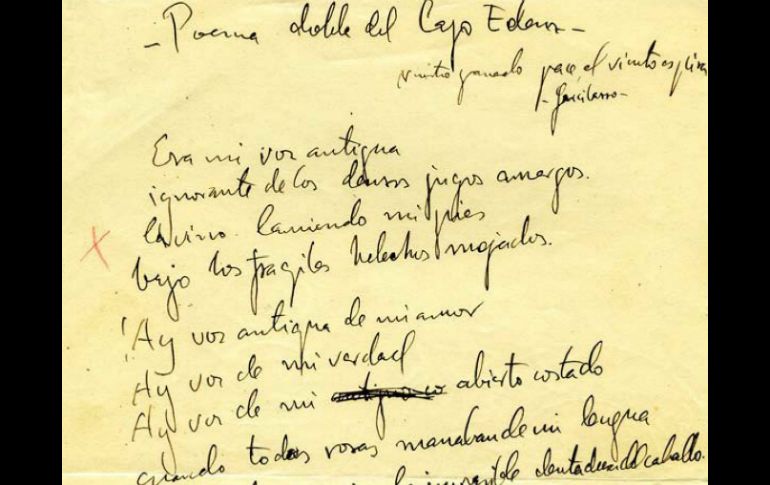 - Poema doble del Lago Edem -
nuestro ganado pace, el viento espira
- Garcilaso -
Era mi voz antigua
ignorante de los densos jugos amargos.
La vino lamiendo mis pies
bajo los fragiles helechos mojados.
¡Ay voz antigua de mi amor
Ay voz de mi verdad
Ay voz de mi abierto costado
quando todas rosas manaban de mi lengua
la impasible dentadura del caballo.